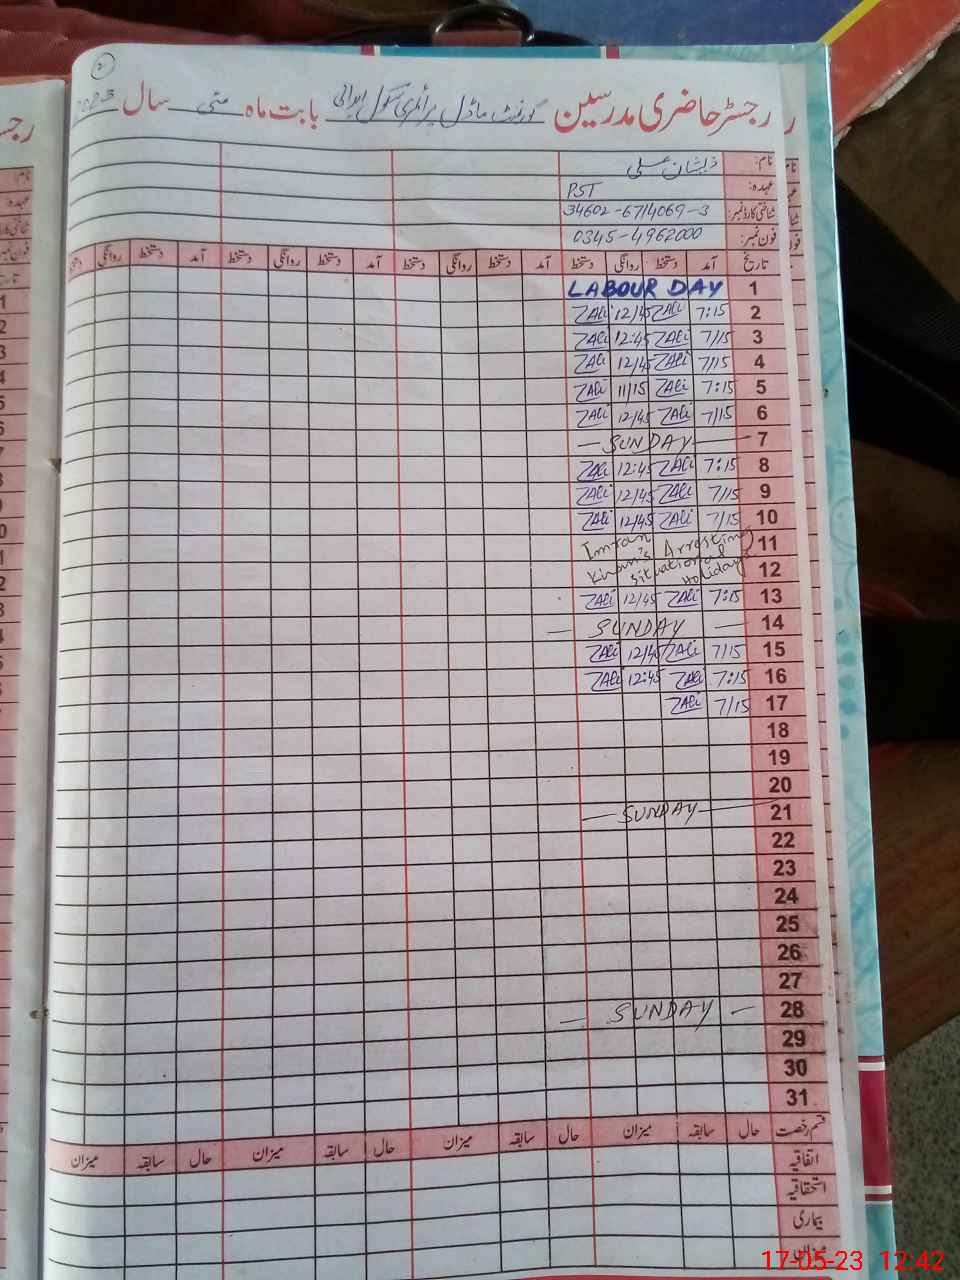 رجسٹر حاضری مدرسین گورنمنٹ ماڈل پرائمری سکول بابت ماہ مئی سال 2023
نام: ذیشان علی
عہدہ: PST
شناختی کارڈ نمبر: 34602-6714069-3
فون نمبر: 0345-4962000
تاریخ آمد دستخط روانگی دستخط آمد دستخط روانگی دستخط آمد دستخط روانگی دستخط آمد دستخط روانگی دستخط
1 LABOUR DAY
2 7:15 ZAli 12/45 ZAli
3 7/15 ZAli 12:45 ZAli
4 7/15 ZAli 12/45 ZAli
5 7:15 ZAli 11/15 ZAli
6 7/15 ZAli 12/45 ZAli
7 SUNDAY
8 7:15 ZAli 12:45 ZAli
9 7/15 ZAli 12/45 ZAli
10 7/15 ZAli 12/45 ZAli
11 Imran Arresting
12 Khan's situational Holidays
13 7:15 ZAli 12/45 ZAli
14 SUNDAY
15 7/15 ZAli 12/45 ZAli
16 7:15 ZAli 12:45 ZAli
17 7/15 ZAli
18
19
20
21 SUNDAY
22
23
24
25
26
27
28 SUNDAY
29
30
31
قسم رخصت حال سابقہ میزان حال سابقہ میزان حال سابقہ میزان حال سابقہ میزان
اتفاقیہ
استحقاقیہ
بیماری
میزان
17-05-23 12:42